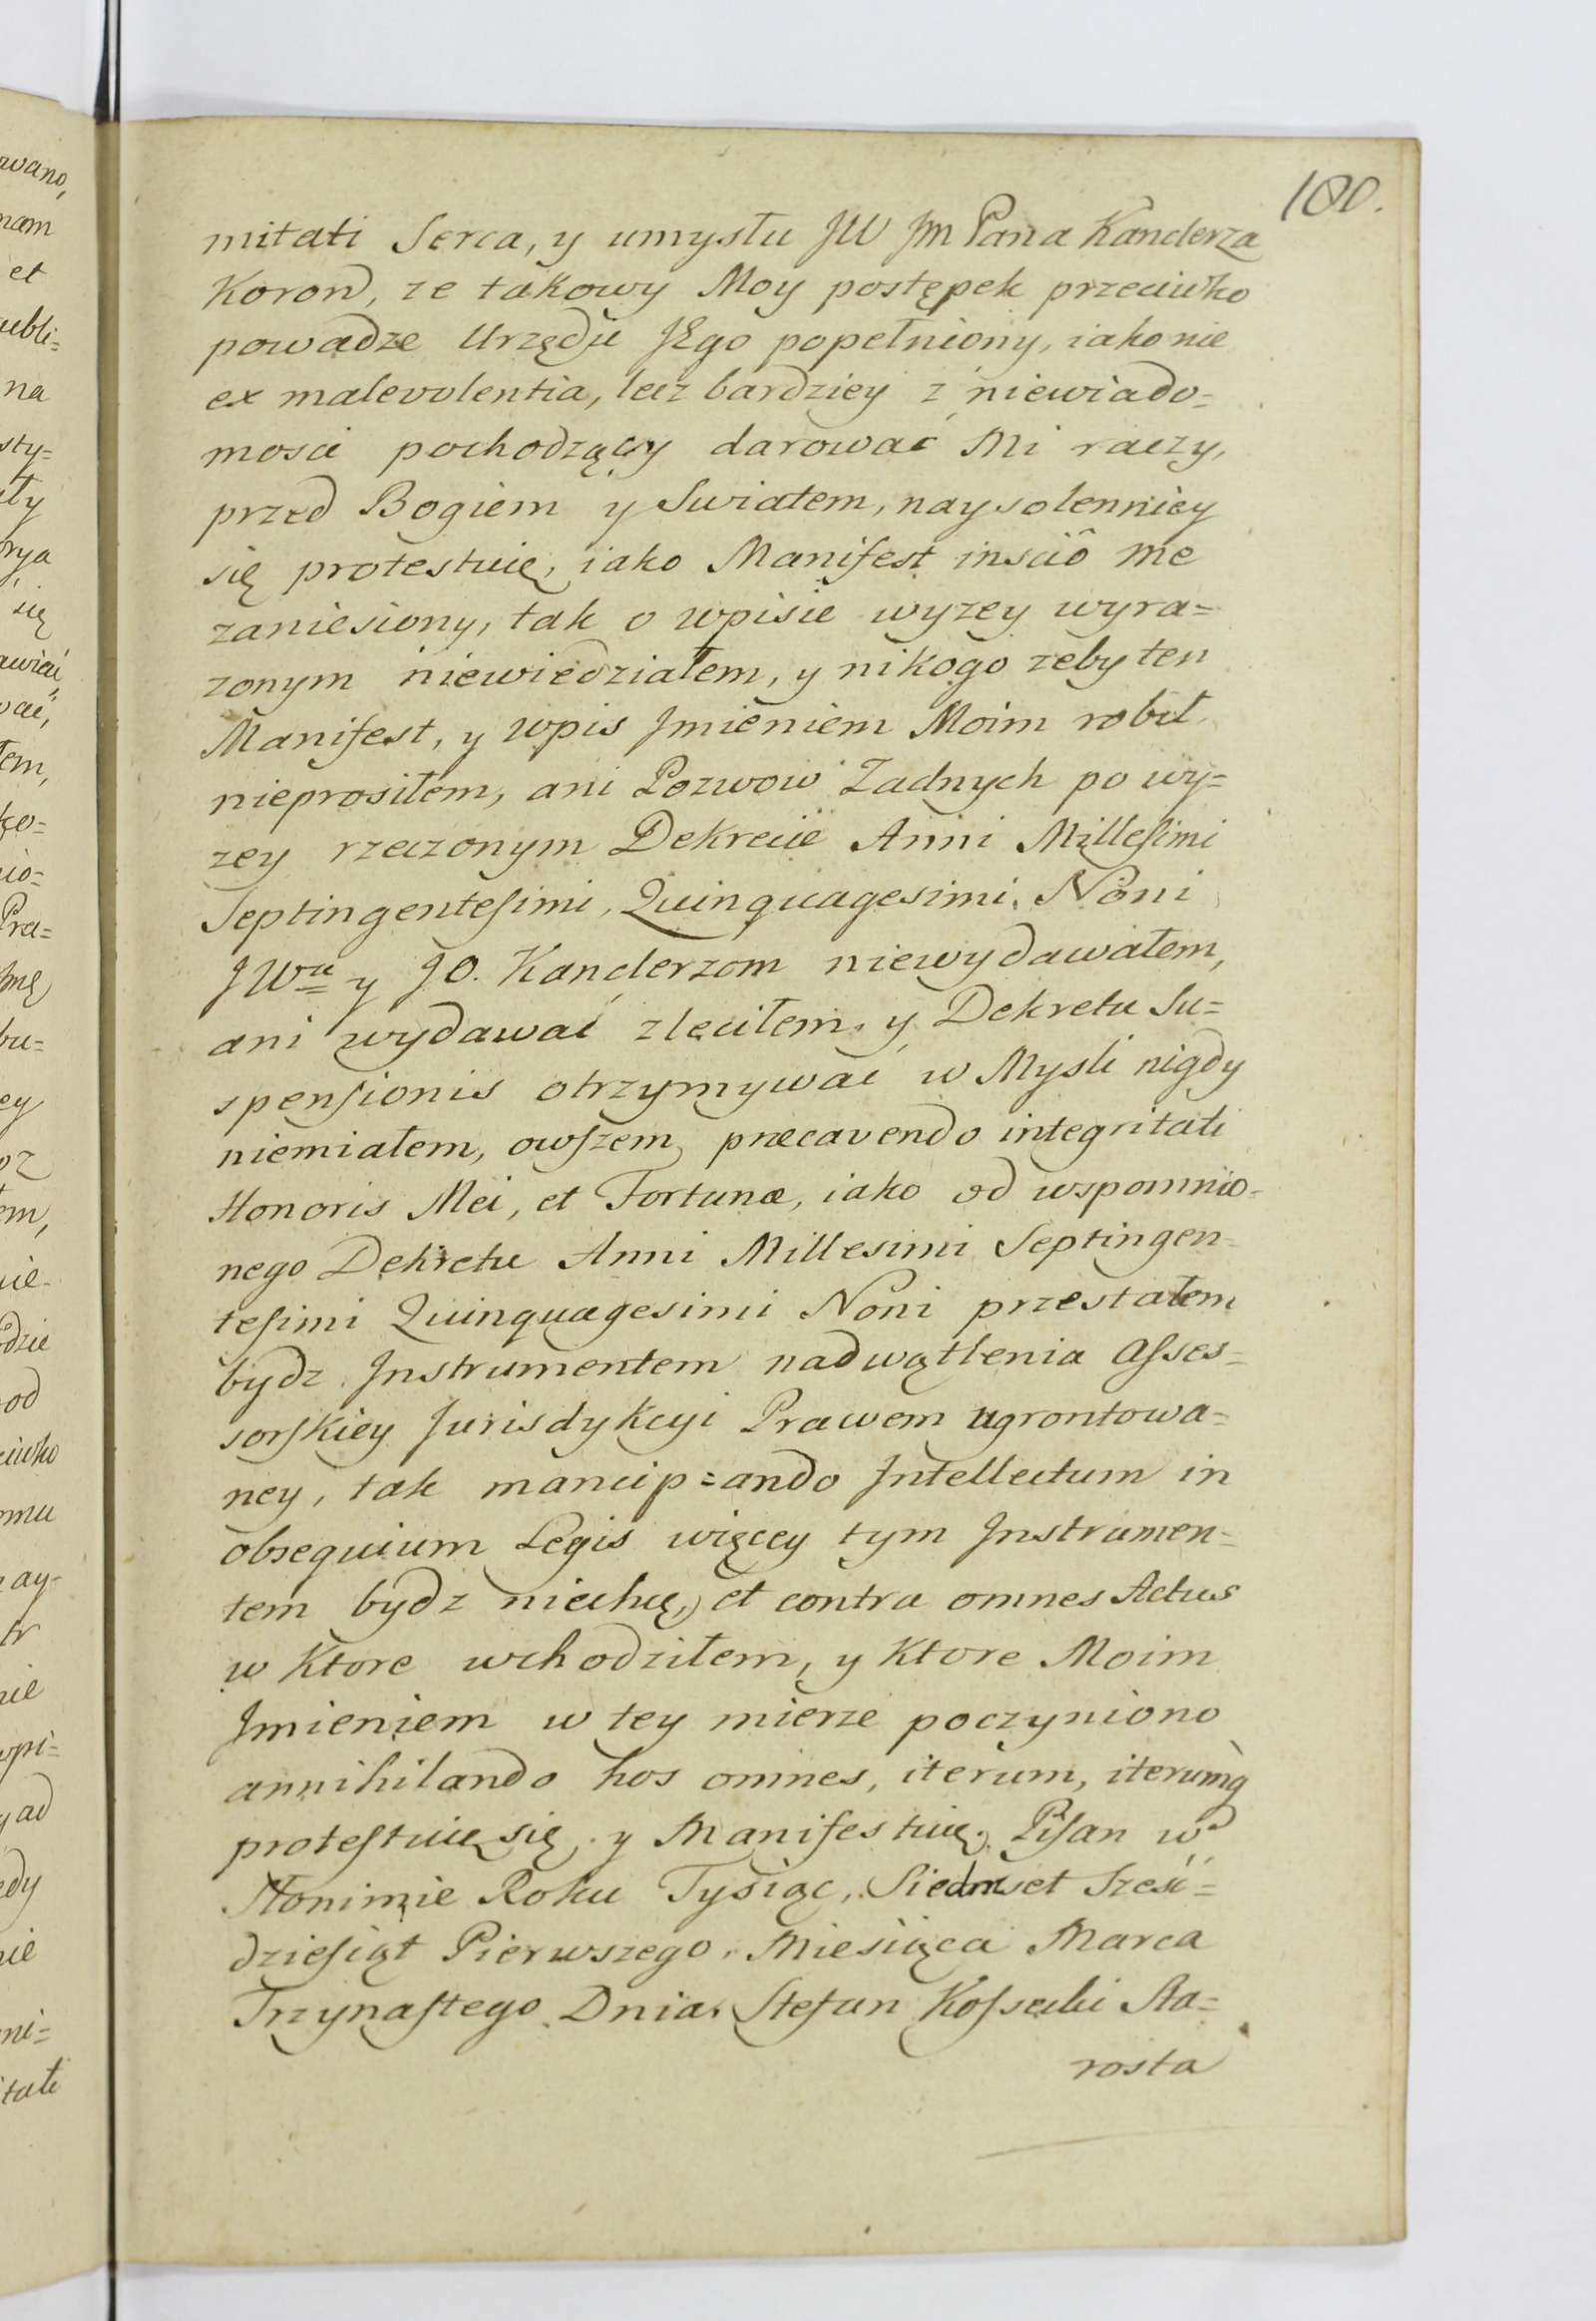 180.
mitati Serca, y umysłu JW Jm Pana Kanclerza
Koron, ze takowy Moy postępek przeciwko
powadze Urzędu JEgo popełniony, iako nie
ex malevolentia, lecz bardziey z niewiado=
mosci pochodzący darować Mi raczy,
przed Bogiem y Swiatem, naysolenniey
się protestuię, iako Manifest insciô me
zaniesiony, tak o wpisie wyzey wyra=
zonym niewiedziałem, y nikogo zeby ten
Manifest, y wpis Jmieniem Moim robił
nieprosiłem, ani Pozwow Zadnych po wy=
zey rzeczonym Dekrecie Anni Millesimi
Septingentesimi, Quinquagesimi, Noni
JWu y JO. Kanclerzom niewydawałem,
ani wydawać zleciłem, y Dekretu Su=
spensionis otrzymywać w Mysli nigdy
niemiałem, owszem præcavendo integritati
Honoris Mei, et Fortunæ, iako od wspomnio=
nego Dekretu Anni Millesimi Septingen=
tesimi Quinquagesimi Noni przestałem
bydz Jnstrumentem nadwątlenia Asses=
sorskiey Jurisdykcyi Prawem ugrontowa=
ney, tak mancip=ando Jntellectum in
obsequium Legis więcey tym Jnstrumen=
tem bydz niechcę, et contra omnes Actus
w Ktore wchodziłem, y Ktore Moim
Jmieniem w tey mierze poczyniono
annihilando hos omnes, iterum, iterumq̀
protestuię się y Manifestuię. Pisan w
Słonimie Roku Tysiąc, Siedmset Szesć=
dziesiąt Pierwszego, Miesiąca Marca
Trzynastego Dnia. Stefan Kossecki Sta=
rosta